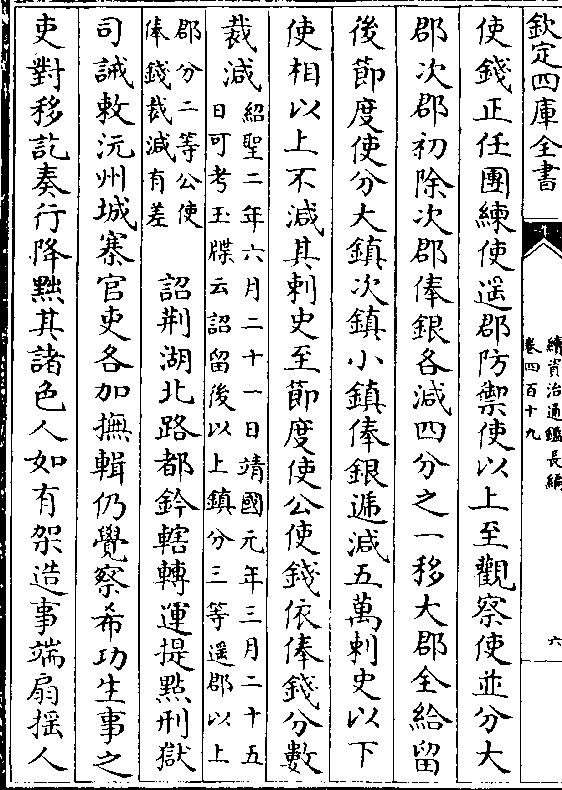 欽定四庫全書
續資治通鑑長編
卷四百十九
六
使錢正任團練使遥郡防禦使以上至觀察使並分大
郡次郡初除次郡俸銀各減四分之一移大郡全給留
後節度使分大鎮次鎮小鎮俸銀遞減五萬刺史以下
使相以上不減其刺史至節度使公使錢依俸錢分數
裁減紹聖二年六月二十一日靖國元年三月二十五
日可考玉牒云詔留後以上鎮分三等遥郡以上
郡分二等公使
俸錢裁減有差
詔荆湖北路都鈐轄轉運提點刑獄
司誡敕沅州城寨官吏各加撫輯仍覺察希功生事之
吏對移訖奏行降黜其諸色人如有架造事端扇揺人